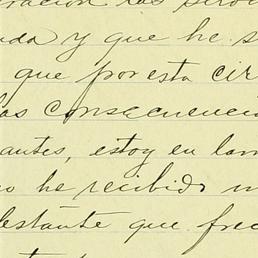 eración las
nda y que he s
que por esta cir
las consecuenci
antes, estoy en la
o he recibido
estante que frec